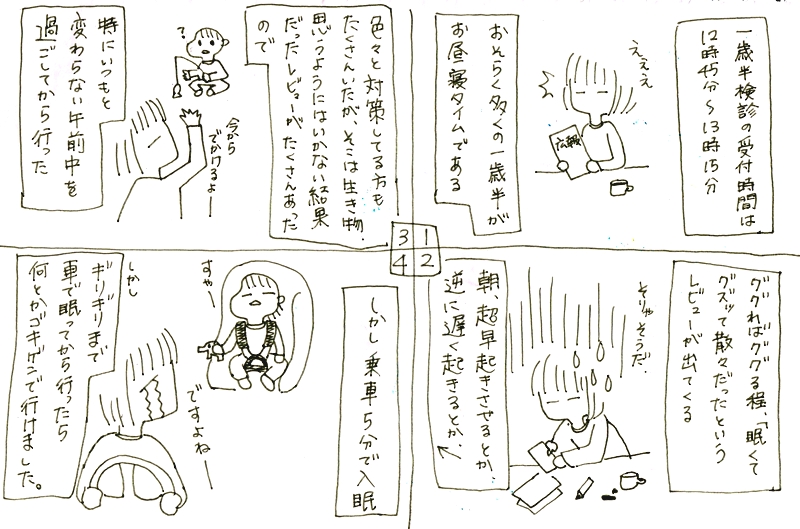 一歳半検診の受付時間は
12時45分〜13時15分
えええ
広報
おそらく多くの一歳半が
お昼寝タイムである
1
2
3
4
ググればググる程、「眠くて
グズッて散々だったという
レビューが出てくる
そりゃそうだ。
朝、超早起きさせるとか、
逆に遅く起きるとか、
色々と対策してる方も
たくさんいたが、そこは生き物、
思うようにはいかない結果
だったレビューがたくさんあった
ので
?
今から
でかけるよー
特にいつもと
変わらない午前中を
過ごしてから行った
しかし乗車5分で入眠
すやー
ですよねー
しかし
ギリギリまで
車で眠ってから行ったら
何とかゴキゲンで行けました。